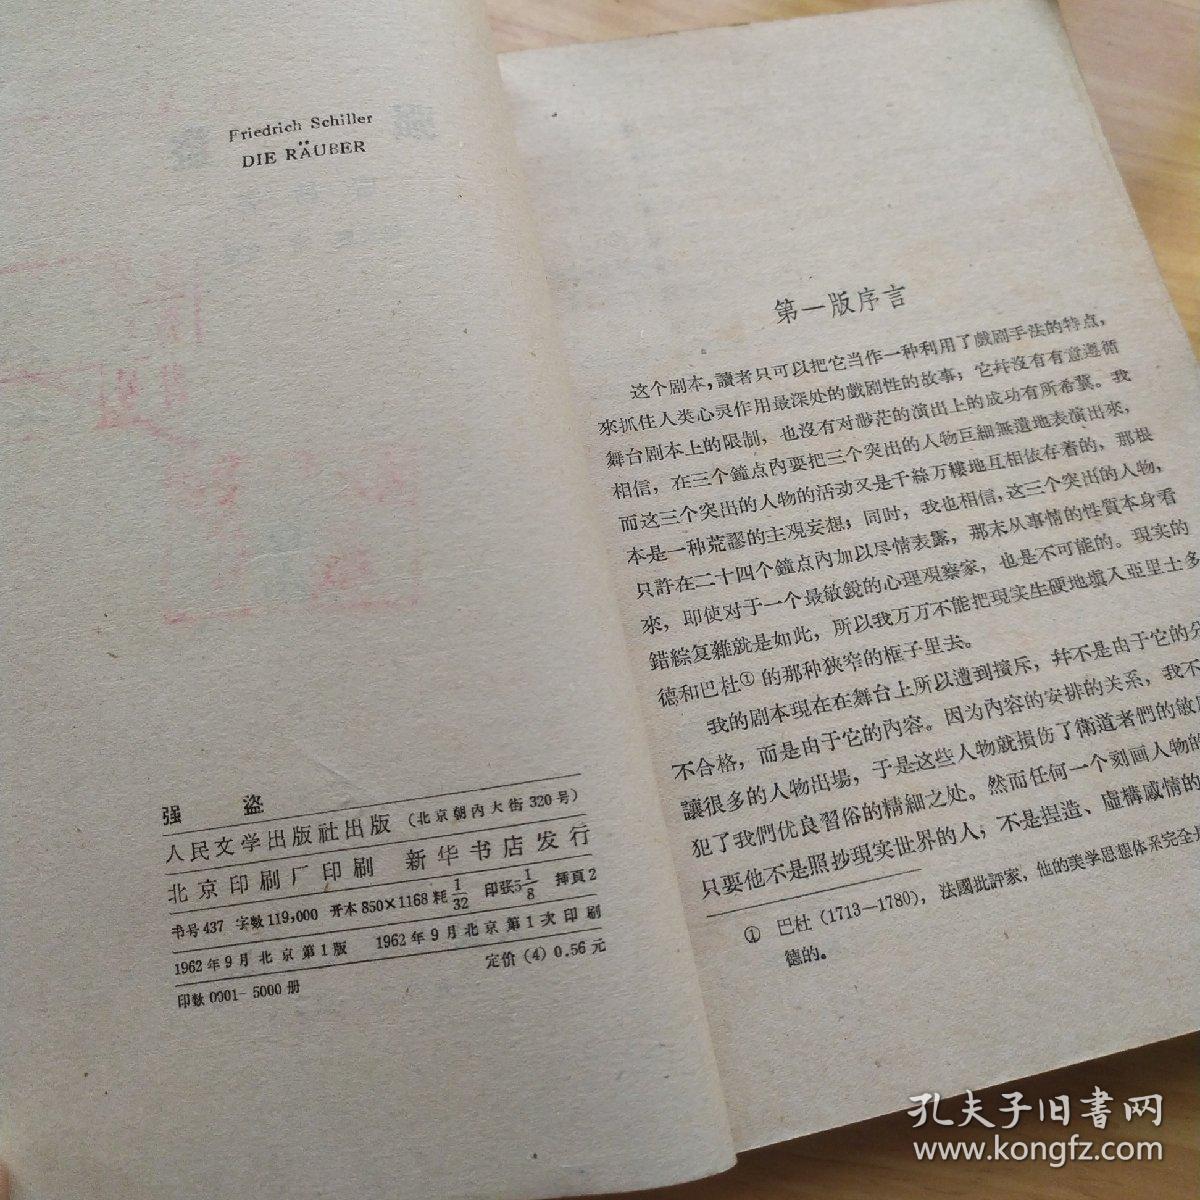 Friedrich Schiller
DIE RÄUBER
强 盗
人民文学出版社出版 (北京朝内大街320号)
北京印刷厂印刷 新华书店发行
书号437 字数119,000 开本850×1168耗1/32 印张5 1/8 插頁2
1962年9月北京第1版 1962年9月北京第1次印刷
印数0001—5000册 定价(4)0.56元
第一版序言
这个剧本,讀者只可以把它当作一种利用了戲剧手法的特点,
來抓住人类心灵作用最深处的戲剧性的故事;它幷沒有有意遵循
舞台剧本上的限制,也沒有对渺茫的演出上的成功有所希冀。我
相信,在三个鐘点內要把三个突出的人物巨細無遺地表演出來,
而这三个突出的人物的活动又是千絲万縷地互相依存着的,那根
本是一种荒謬的主观妄想;同时,我也相信,这三个突出的人物,
只許在二十四个鐘点內加以尽情表露,那末从事情的性質本身看
來,即使对于一个最敏銳的心理观察家,也是不可能的。現实的
錯綜复雜就是如此,所以我万万不能把現实生硬地填入亞里士多
德和巴杜①的那种狹窄的框子里去。
我的剧本現在在舞台上所以遭到擯斥,幷不是由于它的分
不合格,而是由于它的內容。因为內容的安排的关系,我不
讓很多的人物出場,于是这些人物就損伤了衛道者們的敏
犯了我們优良習俗的精細之处。然而任何一个刻画人物的
只要他不是照抄現实世界的人,不是捏造、虛構感情的
① 巴杜(1713—1780),法國批評家,他的美学思想体系完全是
德的。
孔夫子旧書网
www.kongfz.com